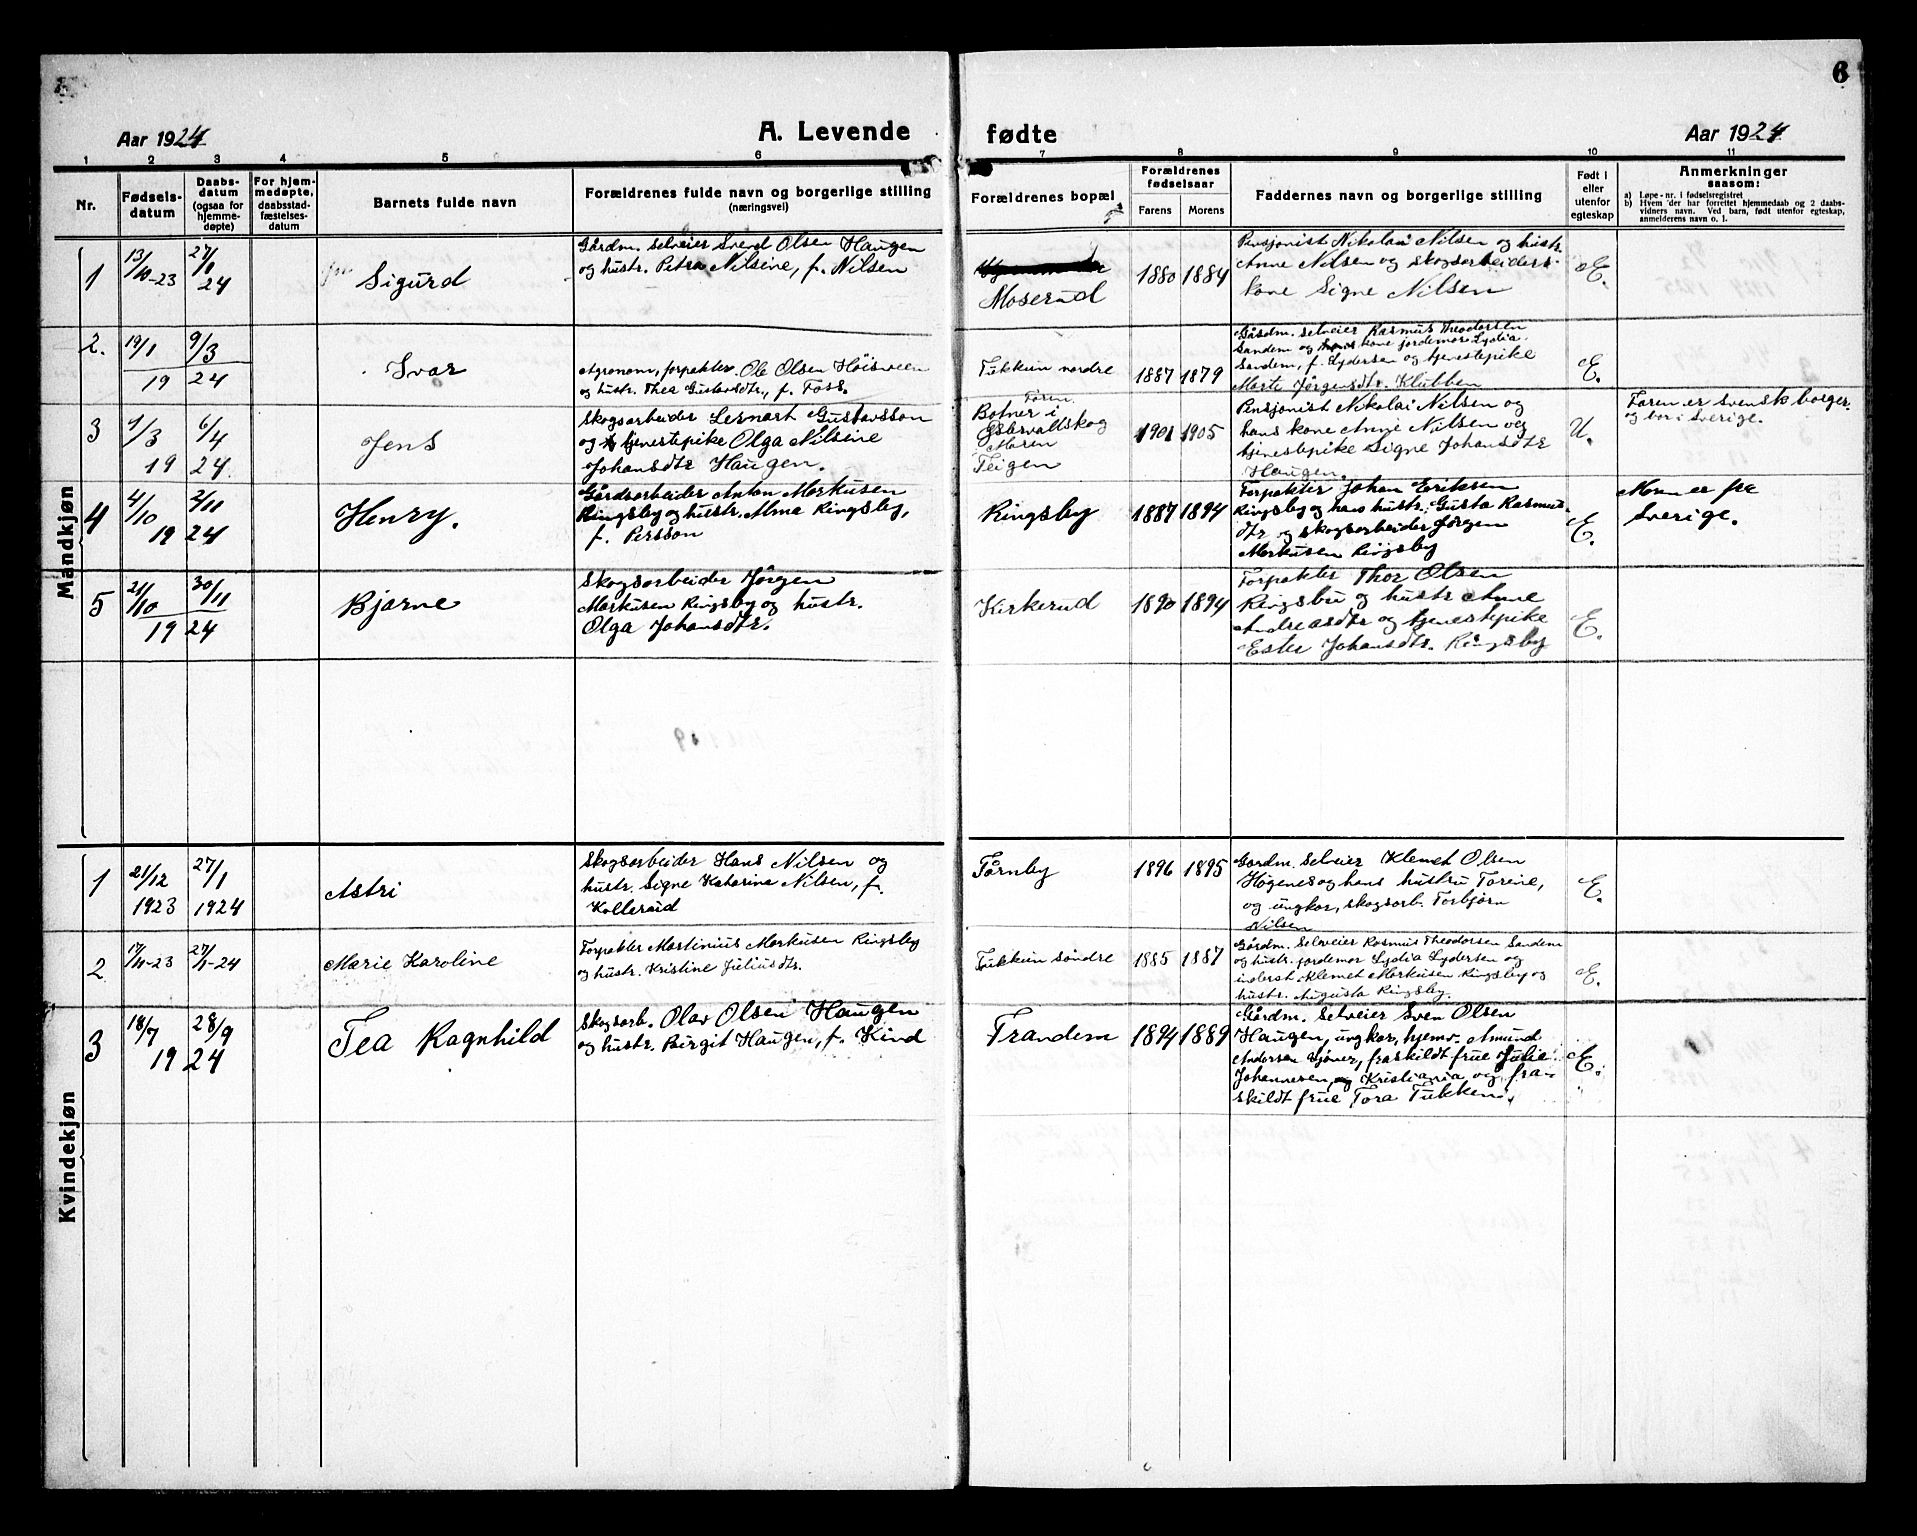 6
Aar 1924
A. Levende
fødte
Aar 1924
1 2 3 4 5 6 7 8 9 10 11
Nr.
Fødsels-
datum
Daabs-
datum
(ogsaa for
hjemme-
døpte)
For hjem-
medøpte,
daabsstad-
fæstelses-
datum
Barnets fulde navn
Forældrenes fulde navn og borgerlige stilling
(næringsvei)
Forældrenes bopæl
Forældrenes
fødselsaar
Farens
Morens
Faddernes navn og borgerlige stilling
Født i
eller
utenfor
egteskap
Anmerkninger
saasom:
a) Løpe-nr. i fødselsregistret
b) Hvem der har forrettet hjemmedaab og 2 daabs-
vidners navn. Ved barn, født utenfor egteskap,
anmelderens navn o. l.
Mandkjøn
1
13/10-23
27/1
24
Sigurd
Gårdm. selveier Svend Olsen Haugen
og hustr. Petra Nilsine, f. Nilsen
Moserud
1880
1884
Pensjonist Nikolai Nilsen og hustr.
Anne Nilsen og skogsarbeiders-
kone Signe Nilsen
E.
2.
19/1
19
9/3
24
Ivar
Agronom, forpakter Ole Olsen Höisveen
og hustr. Thea Gustavsdtr., f. Foss.
Tukkun nordre
1887
1879
Gårdm. selveier Rasmus Theodorsen
Sandem og kone jordemor Lydia
Sandem, f. Lydersen og tjenestepike
Marte Jørgensdtr. Klubben
E.
3
9/3
19
6/4
24.
Jens
Skogsarbeider Lernart Gustavsson
og tjenestepike Olga Nilsine
Johansdtr Haugen.
Faren
Botner i
Østervallskog
Moren
Teigen
1901
1905
Pensjonist Nikolai Nilsen og
hans kone Anne Nilsen og
tjenestepike Signe Johansdtr
Haugen.
U.
Faren er svensk borger
og bor i Sverige.
4
4/10
19
2/11
24
Henry.
Gårdsarbeider Anton Markusen
Ringsby og hustr. Alma Ringsby,
f. Persson
Ringsby
1887
1894
Forpakter Johan Eriksen
Ringsby og hans hustr. Gusta Rasmus-
dtr og skogsarbeider Jørgen
Markusen Ringsby
E.
Moren er fra
Sverige.
5
21/10
19
30/11
24
Bjarne
Skogsarbeider Jørgen
Markusen Ringsby og hustr.
Olga Johansdtr.
Kirkerud
1890
1894
Forpakter Thor Olsen
Ringsbu og hustr Anne
Andreasdtr og tjenestepike
Ester Johansdtr. Ringsby
E.
Kvindekjøn
1
21/12
1923
27/1
1924
Astri
Skogsarbeider Hans Nilsen og
hustr. Signe Katarina Nilsen, f.
Kollerud
Tårnby
1896
1895
Gardm. Selveier Klemet Olsen
Høgenes og hans hustru Torine,
og ungkar, skogsarb. Torbjørn
Nilsen
E.
2
17/11-23
27/1-24
Marie Karoline
Forpakter Martinius Markusen Ringsby
og hustr. Kristine Juliusdtr.
Tukkun søndre
1885
1887
Gårdm. Selveier Rasmus Theodorsen Sandem
og hustr. jordemor Lydia Lydersen og
inderst Klemet Markusen Ringsby og
hustr. Augusta Ringsby.
E.
3
18/7
19
28/9
24
Tea Ragnhild
Skogsarb. Olav Olsen Haugen
og hustr. Birgit Haugen, f. Kind
Trandem
1894
1889
Gårdm. Selveier Sven Olsen
Haugen, ungkar, hjemv. Amund
Andersen Tjøner, fraskildt frue Julie
Johannesen, og Kristiania og fra-
skildt frue Tora Tukken
E.